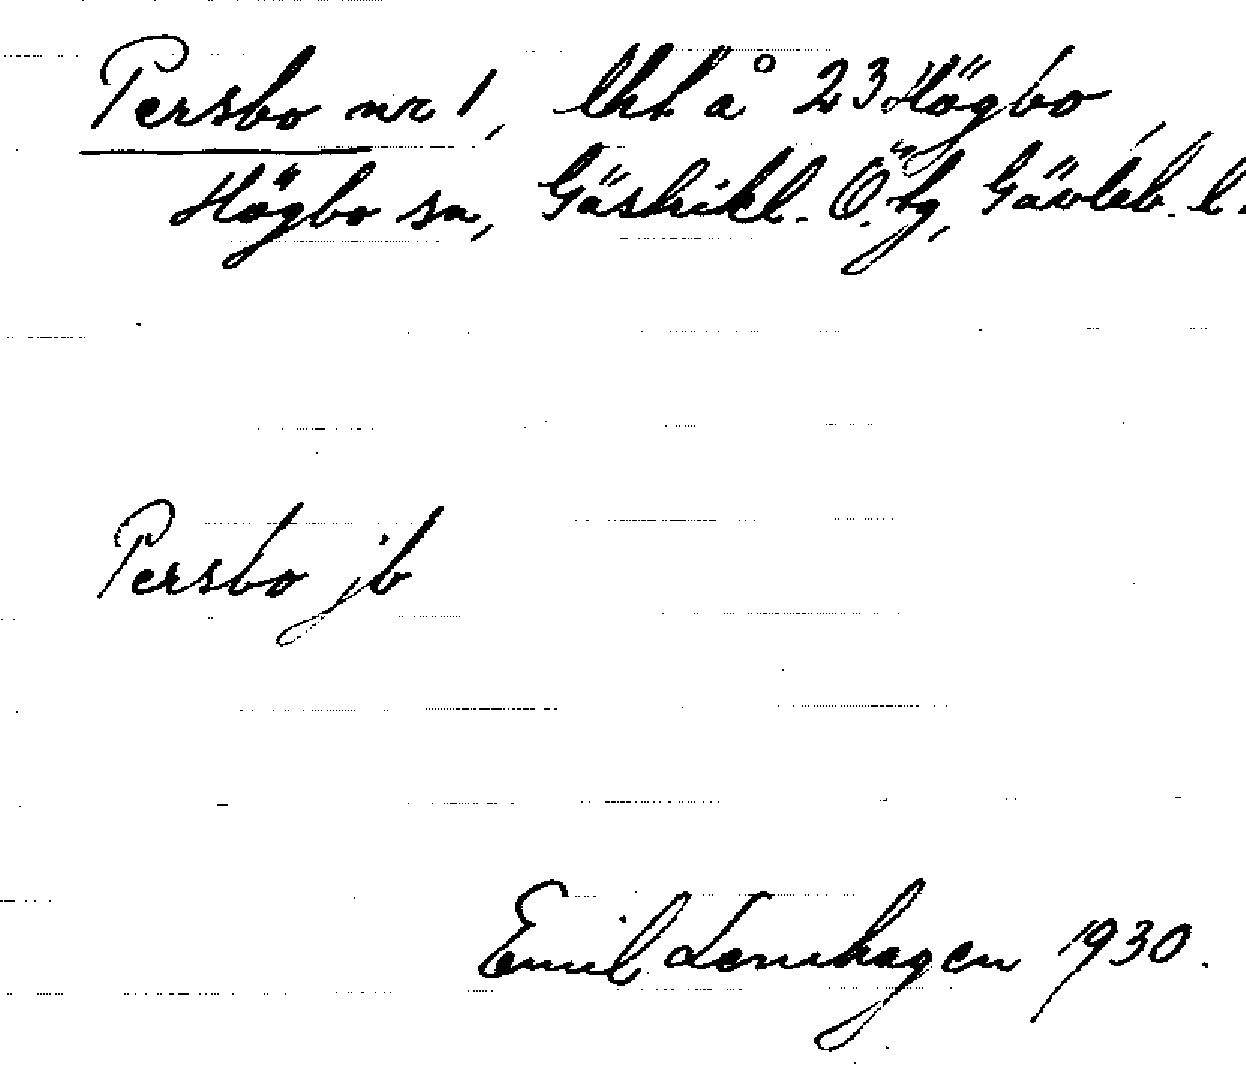 Persbo nr 1, lht å 23 Högbo,
Högbo sn, Gästrikl. Ö. tg, Gävleb. l.
Persbo jb
Emil 1930.